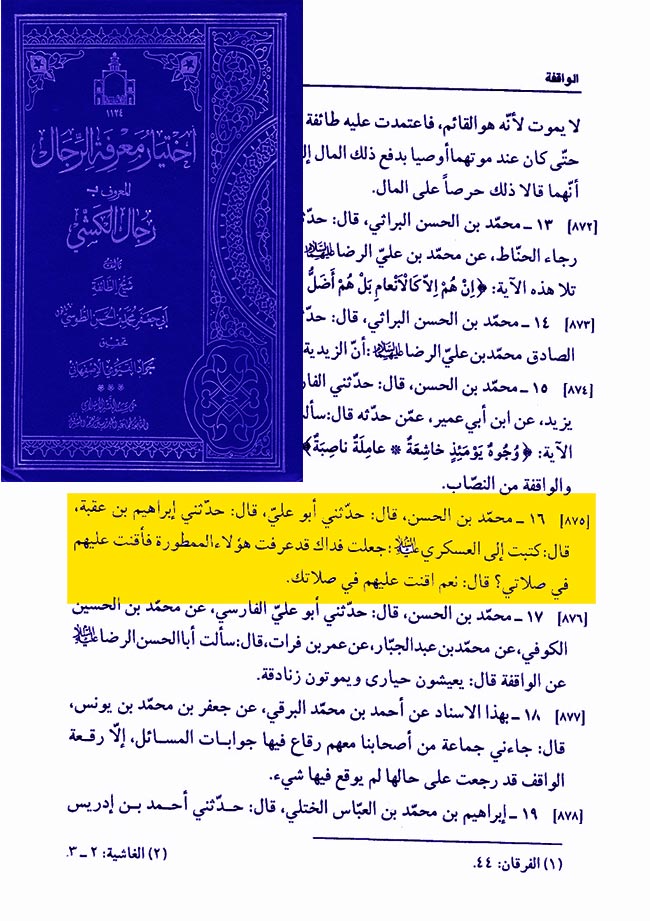 ١١٣٤
اختيار معرفة الرجال
المعروف بـ
رجال الكشي
تأليف
شيخ الطائفة
أبي جعفر محمد بن الحسن الطوسي
تحقيق
جواد القيومي الاصفهاني
الواقفة
لا يموت لأنّه هو القائم، فاعتمدت عليه طائفة
حتّى كان عند موتهما أوصيا بدفع ذلك المال إلـ
أنّهما قالا ذلك حرصاً على المال.
[٨٧٢] ١٣ ـ محمّد بن الحسن البراثي، قال: حدّثـ
رجاء الحنّاط، عن محمّد بن عليّ الرضا عليهما السلام
تلا هذه الآية: ﴿إِنْ هُمْ إِلاّ كَالْأَنْعامِ بَلْ هُمْ أَضَلُّ
[٨٧٣] ١٤ ـ محمّد بن الحسن البراثي، قال: حدّثـ
الصادق محمّد بن عليّ الرضا عليهما السلام: أنّ الزيدية
[٨٧٤] ١٥ ـ محمّد بن الحسن، قال: حدّثني الفار
يزيد، عن ابن أبي عمير، عمّن حدّثه قال: سألـ
الآية: ﴿وُجُوهٌ يَوْمَئِذٍ خاشِعَةٌ * عامِلَةٌ ناصِبَةٌ﴾
والواقفة من النصّاب.
[٨٧٥] ١٦ ـ محمّد بن الحسن، قال: حدّثني أبو عليّ، قال: حدّثني إبراهيم بن عقبة،
قال: كتبت إلى العسكري عليه السلام: جعلت فداك قد عرفت هؤلاء الممطورة فأقنت عليهم
في صلاتي؟ قال: نعم اقنت عليهم في صلاتك.
[٨٧٦] ١٧ ـ محمّد بن الحسن، قال: حدّثني أبو عليّ الفارسي، عن محمّد بن الحسين
الكوفي، عن محمّد بن عبد الجبّار، عن عمر بن فرات، قال: سألت أبا الحسن الرضا عليه السلام
عن الواقفة قال: يعيشون حيارى ويموتون زنادقة.
[٨٧٧] ١٨ ـ بهذا الاسناد عن أحمد بن محمّد البرقي، عن جعفر بن محمّد بن يونس،
قال: جاءني جماعة من أصحابنا معهم رقاع فيها جوابات المسائل، إلّا رقعة
الواقف قد رجعت على حالها لم يوقع فيها شيء.
[٨٧٨] ١٩ ـ إبراهيم بن محمّد بن العبّاس الختلي، قال: حدّثني أحمد بن إدريس
(١) الفرقان: ٤٤.
(٢) الغاشية: ٢ ـ ٣.